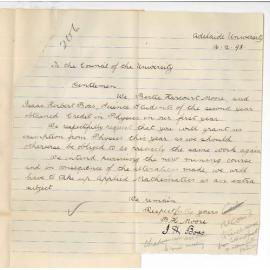 2086
Adelaide University
16.2.98
To the Council of the University
Gentlemen
We Bertie Harcourt Moore, and
Isaac Herbert Boas, Science Students of the second year
obtained Credit in Physics in our first year.
We respectfully request that you will grant us
exemption from Physics this year as we should
otherwise be obliged to do exactly the same work again
We intend pursuing the new mining course
and in consequence of the alterations made, we will
have to take up Applied Mathematics as an extra
subject
We remain
Respectfully yours
B. H. Moore
I. H. Boas